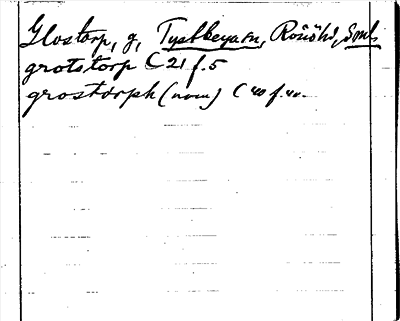 Glostorp, g, Tystberga sn, Rönöhd, Sml.
grotstorp C 21 f. 5
grostorph (nom) C 40 f. 40.